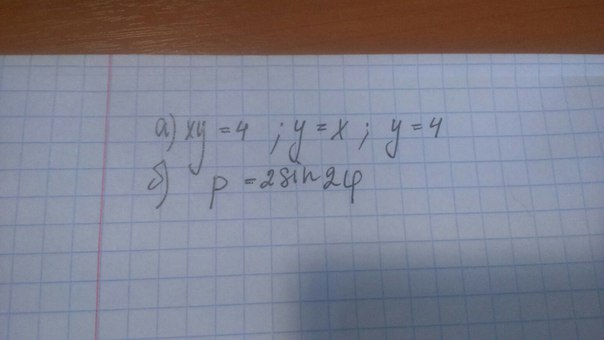 а) xy = 4 ; y = x ; y = 4
б) ρ = 2 sin 2φ